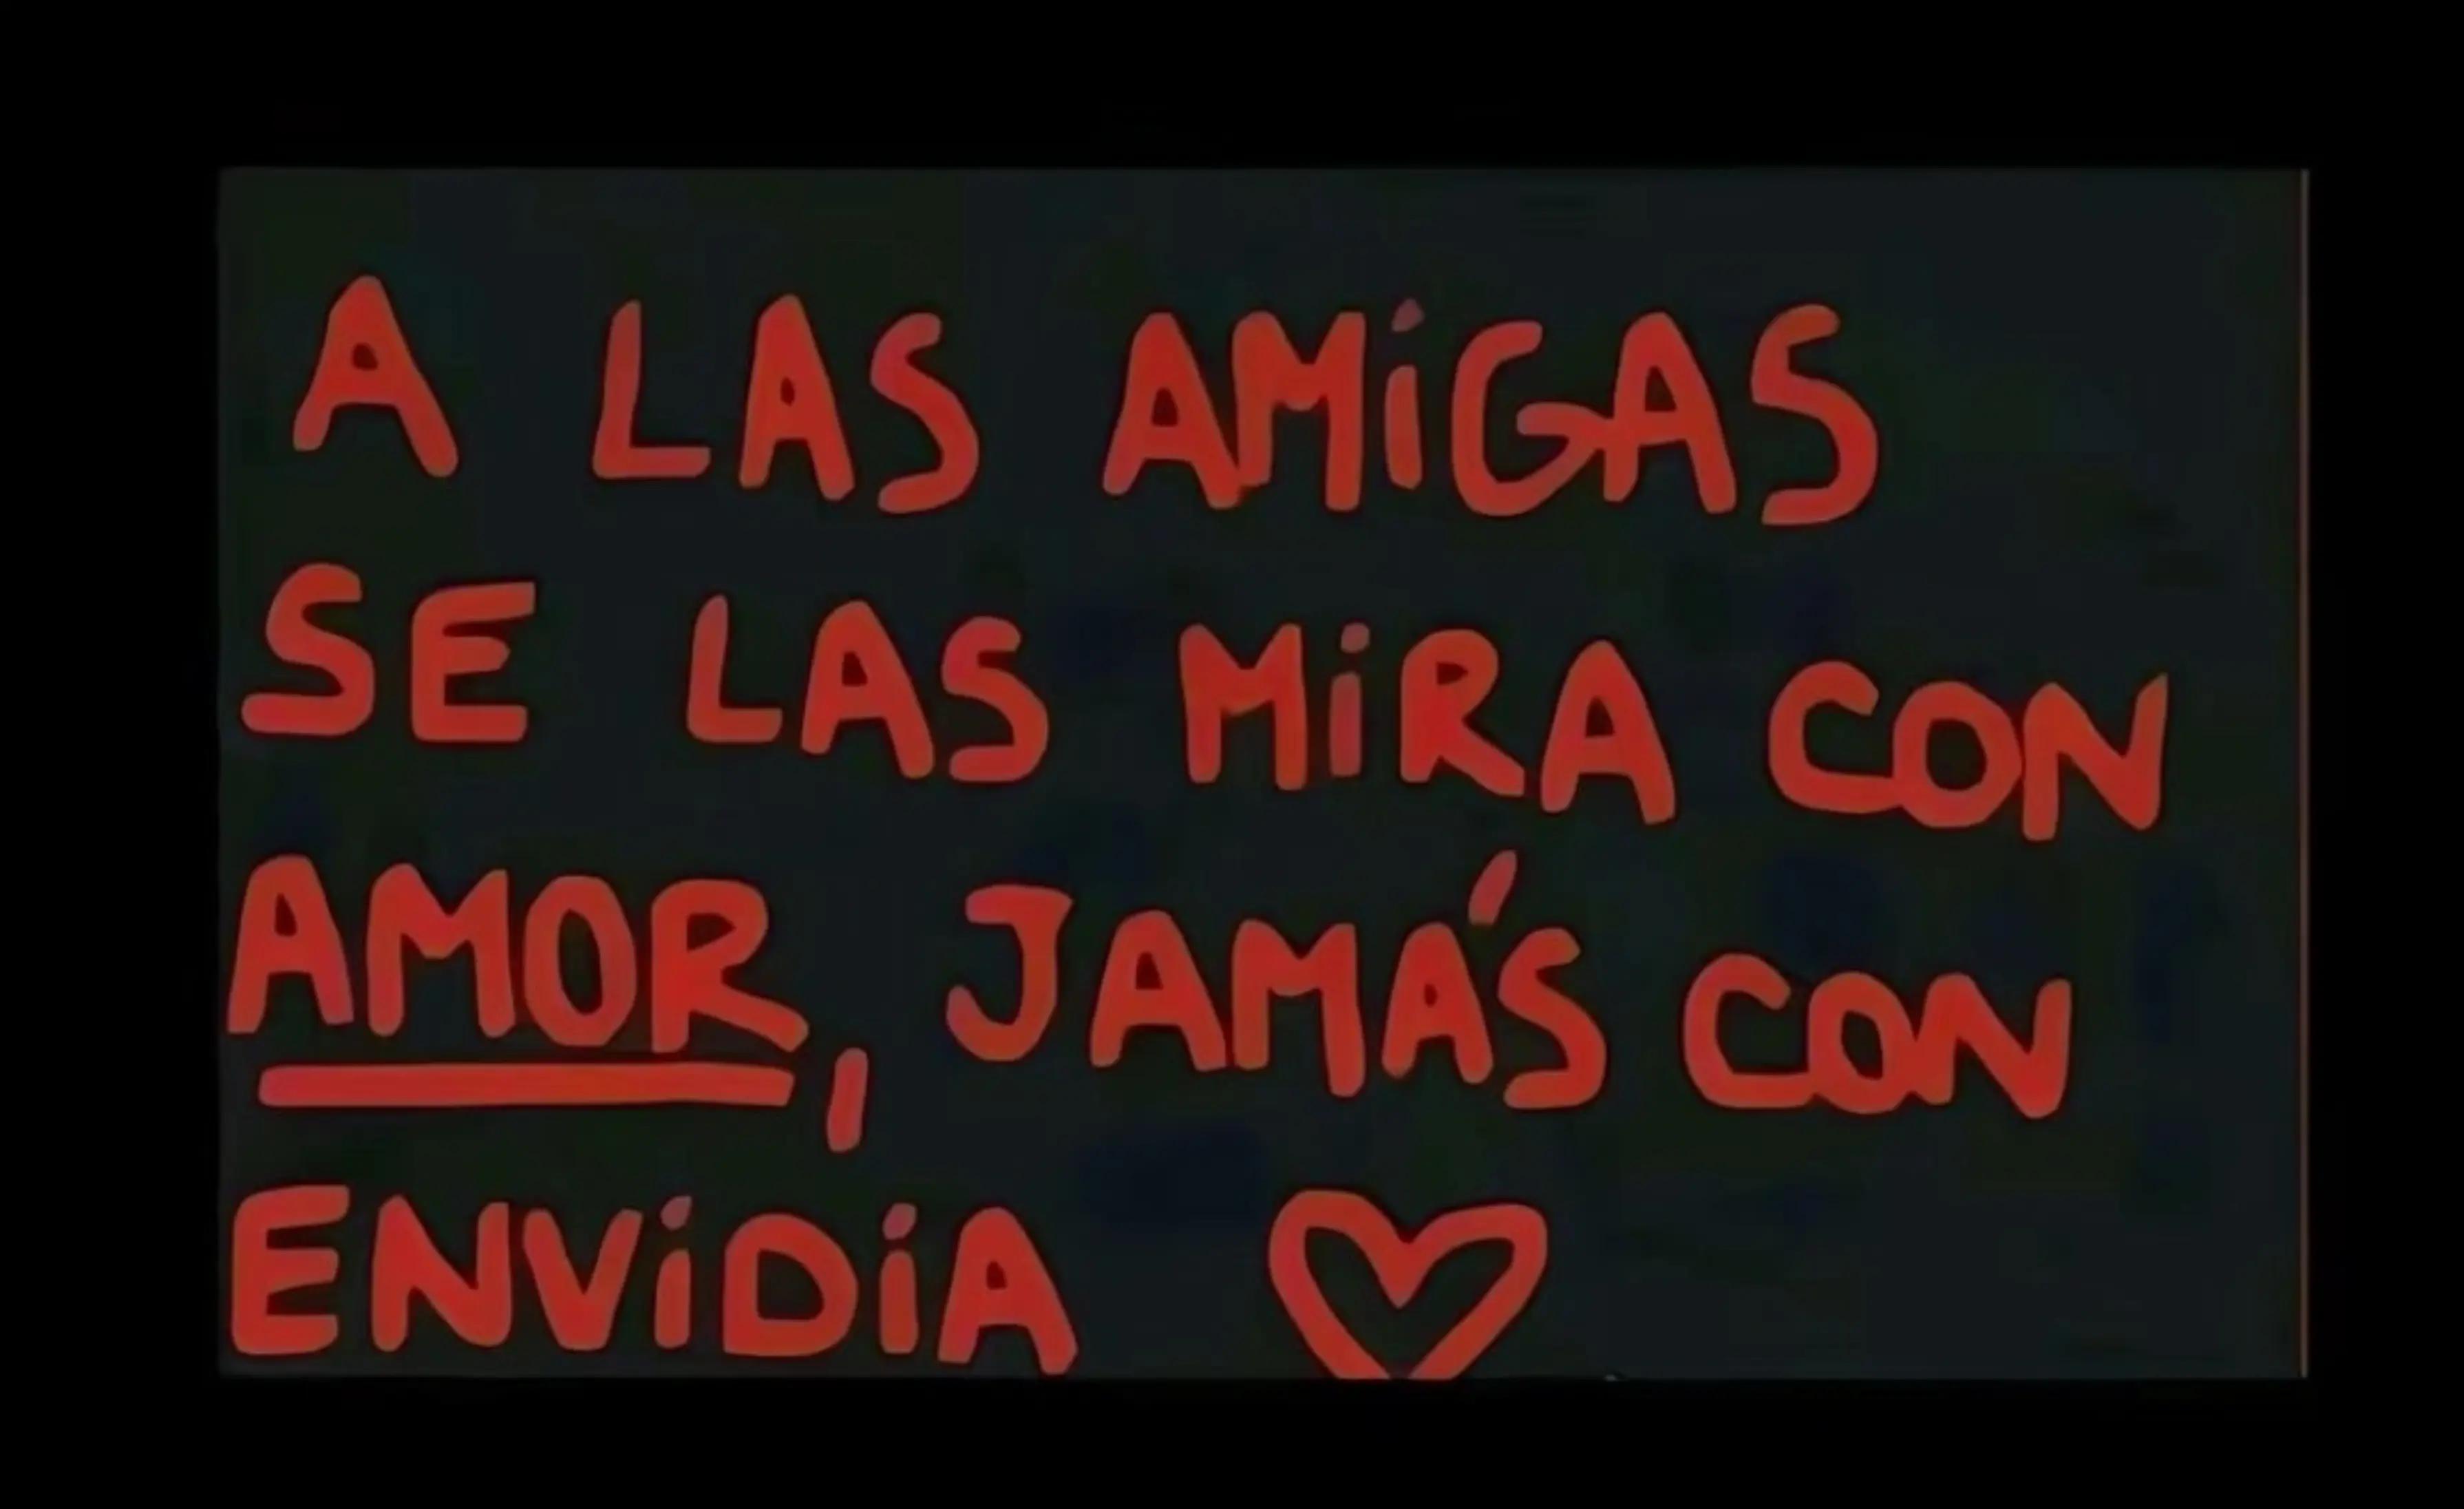 A LAS AMiGAS
SE LAS MiRA CON
AMOR, JAMÁS CON
ENViDiA